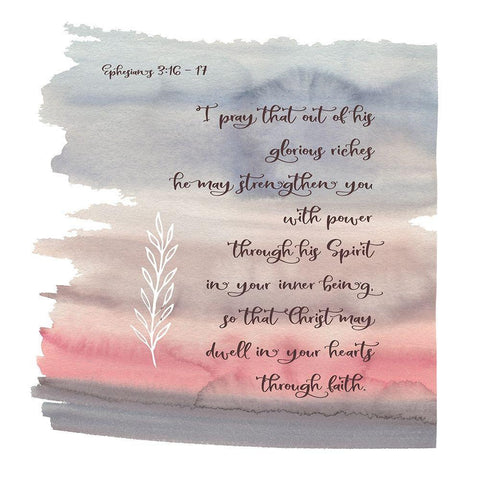 Ephesians 3:16 - 17
I pray that out of his
glorious riches
he may strengthen you
with power
through his Spirit
in your inner being,
so that Christ may
dwell in your hearts
through faith.